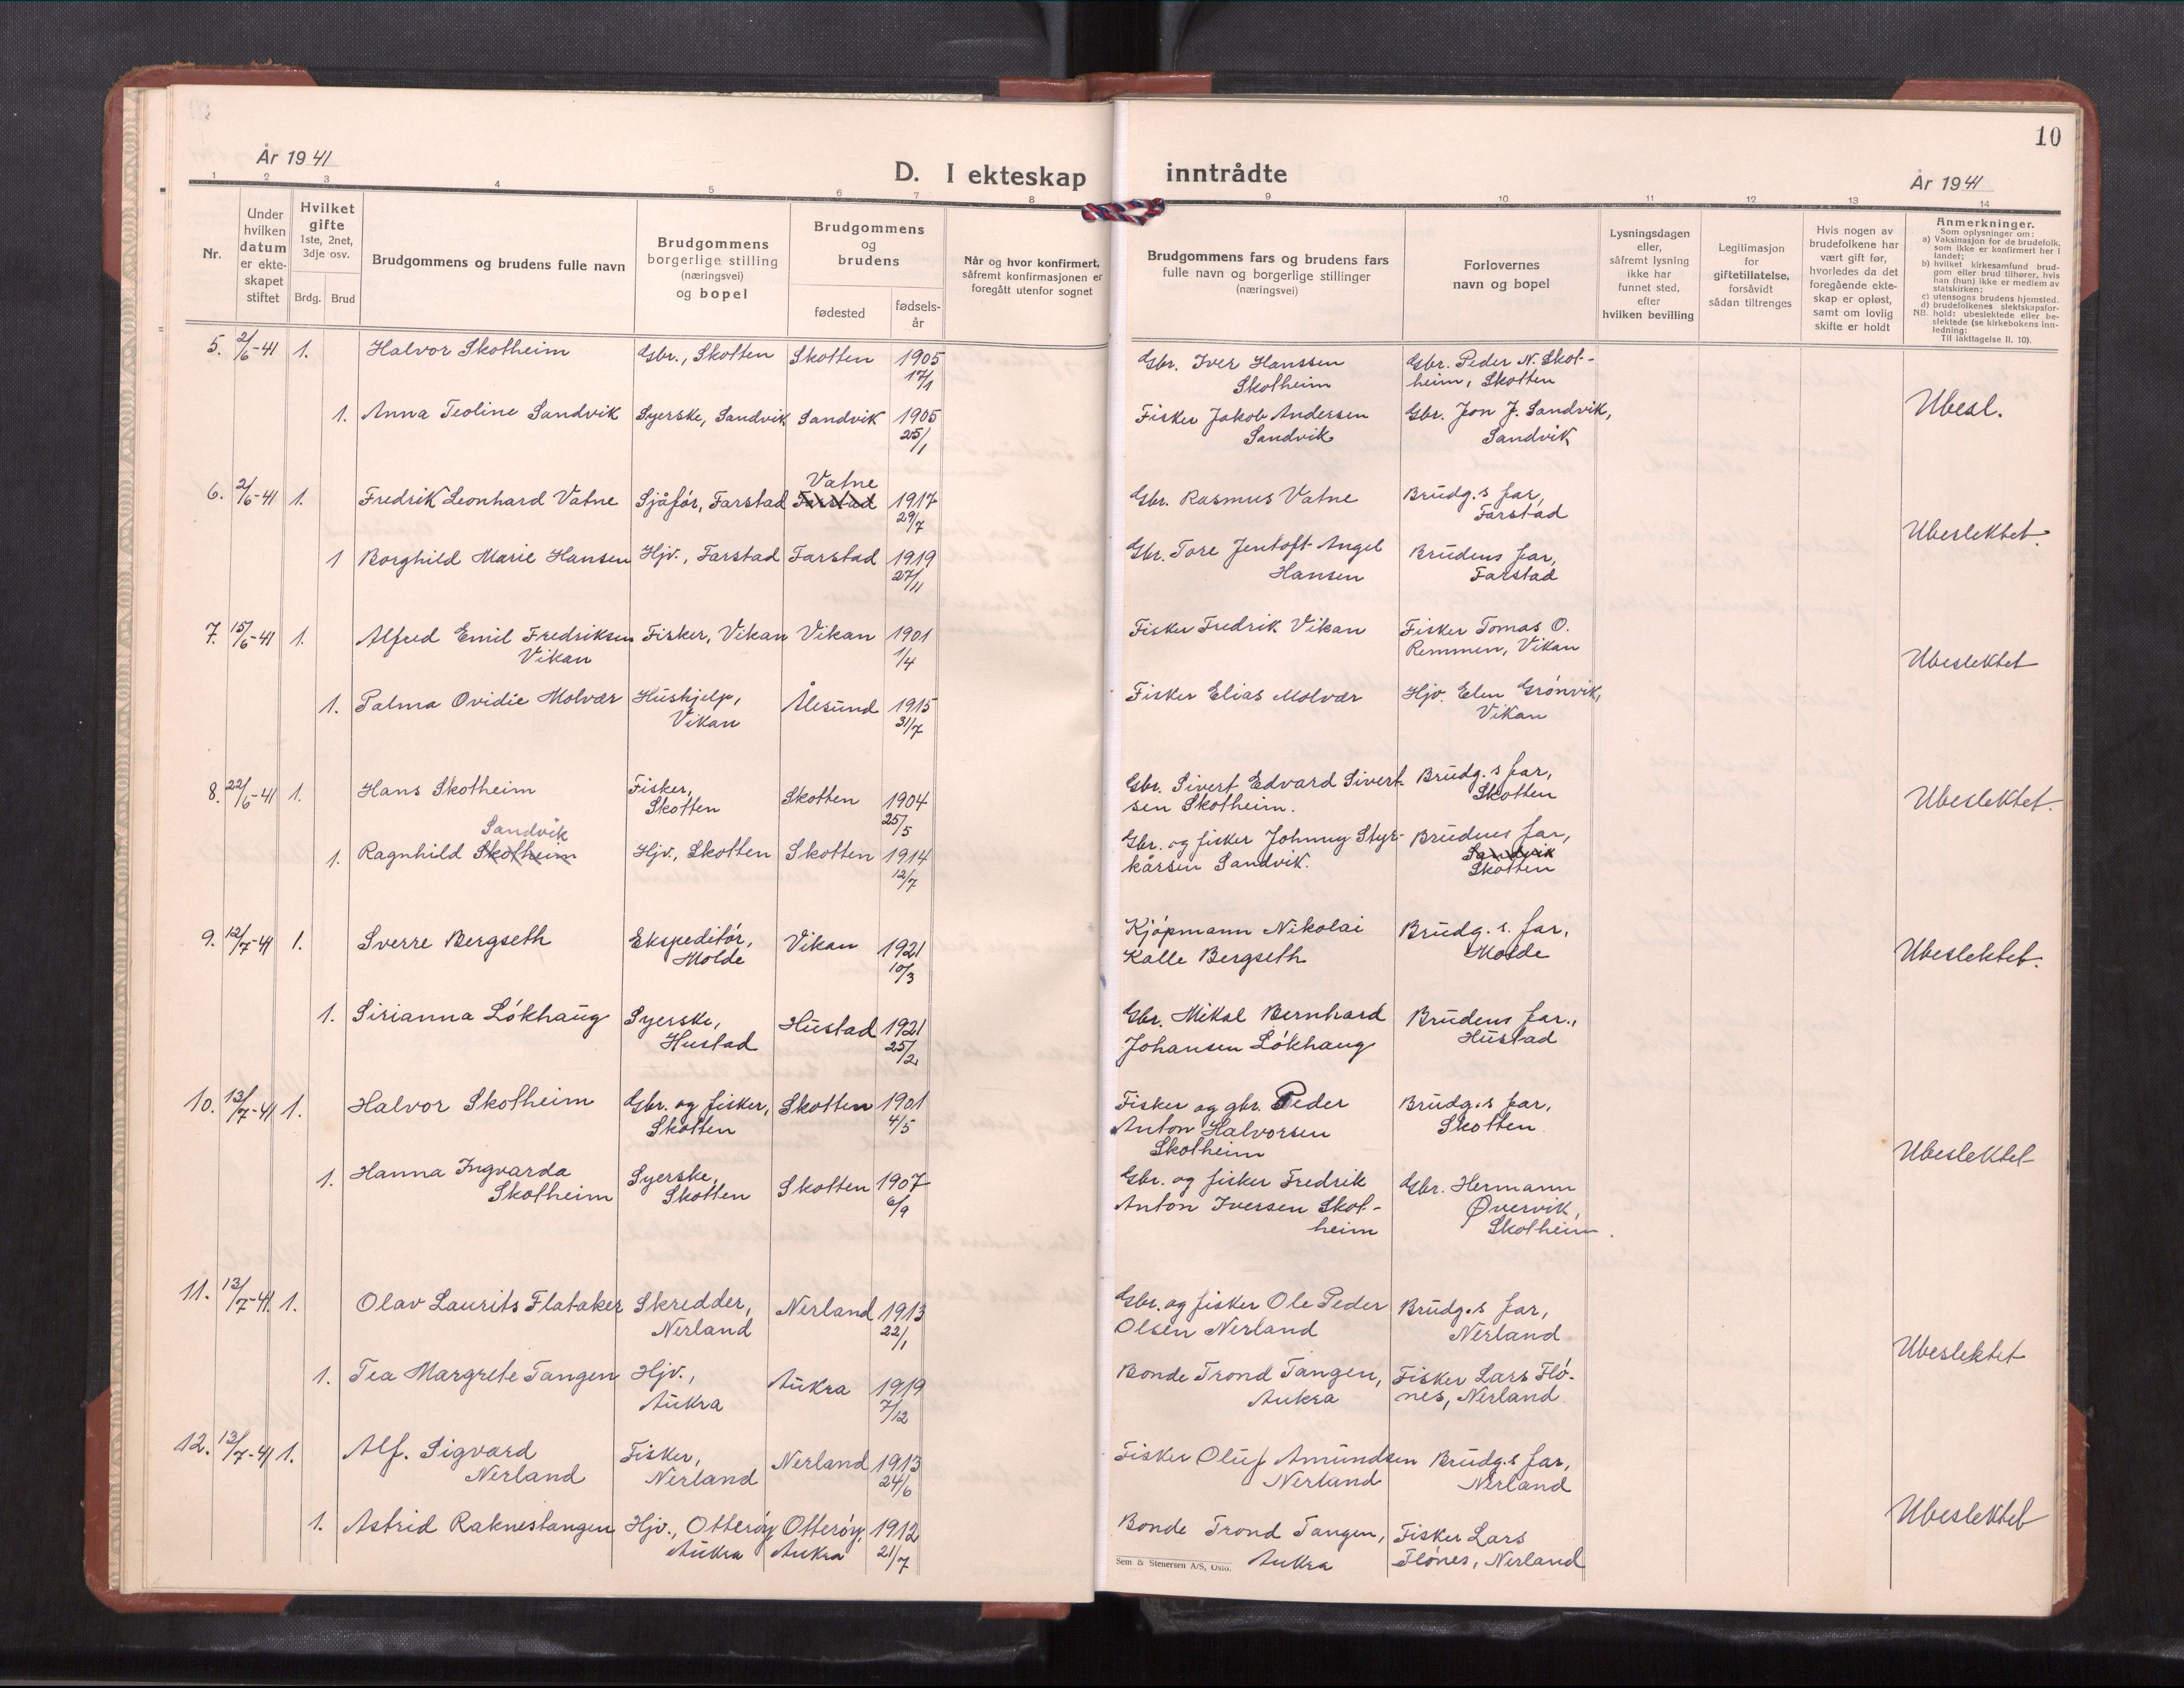 10
År 1941
D. I ekteskap inntrådte
År 1941
1 2 3 4 5 6 7 8 9 10 11 12 13 14
Nr.
Under hvilken datum er ekte- skapet stiftet
Hvilket gifte 1ste, 2net, 3dje osv.
Brdg. Brud
Brudgommens og brudens fulle navn
Brudgommens borgerlige stilling (næringsvei) og bopel
Brudgommens og brudens
fødested
fødsels- år
Når og hvor konfirmert, såfremt konfirmasjonen er foregått utenfor sognet
Brudgommens fars og brudens fars fulle navn og borgerlige stillinger (næringsvei)
Forlovernes navn og bopel
Lysningsdagen eller, såfremt lysning ikke har funnet sted, efter hvilken bevilling
Legitimasjon for giftetillatelse, forsåvidt sådan tiltrenges
Hvis nogen av brudefolkene har vært gift før, hvorledes da det foregående ekte- skap er opløst, samt om lovlig skifte er holdt
Anmerkninger.
Som oplysninger om:
a) Vaksinasjon for de brudefolk, som ikke er konfirmert her i landet;
b) hvilket kirkesamfund brud- gom eller brud tilhører, hvis han (hun) ikke er medlem av statskirken;
c) utensogns brudens hjemsted.
d) brudefolkenes slektskapsfor- hold: ubeslektede eller be- slektede (se kirkebokens inn- ledning:
NB.
Til iakttagelse II. 10).
5. 2/6-41 1. Halvor Skotheim Gbr., Skotten Skotten 1905 17/1 Gbr. Iver Hanssen Skotheim Gbr. Peder N. Skot- heim, Skotten
1. Anna Teoline Sandvik Syerske, Sandvik Sandvik 1905 25/1 Fisker Jakob Andersen Sandvik Gbr. Jon J. Sandvik, Sandvik Ubesl.
6. 2/6-41 1. Fredrik Leonhard Vatne Sjåfór, Farstad Vatne Farstad 1917 29/7 Gbr. Rasmus Vatne Brudg.s far, Farstad
1 Borghild Marie Hansen Hjv., Farstad Farstad 1919 27/11 Gbr. Tore Jentoft Angel Hansen Brudens far, Farstad Ubeslektet.
7. 15/6-41 1. Alfred Emil Fredriksen Vikan Fisker, Vikan Vikan 1901 1/4 Fisker Fredrik Vikan Fisker Tomas O. Remmen, Vikan
1. Palma Ovidie Molvær Hushjelp, Vikan Ålesund 1915 31/7 Fisker Elias Molvær Hjv. Elen Grónvik, Vikan Ubeslektet
8. 22/6-41 1. Hans Skotheim Fisker, Skotten Skotten 1904 25/5 Gbr. Sivert Edvard Sivert- sen Skotheim. Brudg.s far, Skotten
1. Ragnhild Skotheim Sandvik Hjv., Skotten Skotten 1914 12/7 Gbr. og fisker Johnny Styr- kårsen Sandvik. Brudens far, Sandvik Skotten Ubeslektet.
9. 12/7-41 1. Sverre Bergseth Ekspeditór, Molde Vikan 1921 10/3 Kjópmann Nikolai Kalle Bergseth Brudg.s. far, Molde
1. Sirianna Lókhaug Syerske, Hustad Hustad 1921 25/2 Gbr. Mikal Bernhard Johansen Lókhaug Brudens far., Hustad Ubeslektet.
10. 13/7-41 1. Halvor Skotheim Gbr. og fisker, Skotten Skotten 1901 4/5 Fisker og gbr. Peder Anton Halvorsen Skotheim Brudg.s far, Skotten.
1. Hanna Ingvarda Skotheim Syerske, Skotten Skotten 1907 6/9 Gbr. og fisker Fredrik Anton Iversen Skot- heim Gbr. Hermann Øvervik, Skotheim. Ubeslektet
11. 13/7-41. 1. Olav Laurits Flataker Skredder, Nerland Nerland 1913 22/1 Gbr. og fisker Ole Peder Olsen Nerland Brudg.s far, Nerland
1. Tea Margrete Tangen Hjv., Aukra Aukra 1919 7/12 Bonde Trond Tangen, Aukra Fisker Lars Fló- nes, Nerland. Ubeslektet
12. 13/7-41 1. Alf. Sigvard Nerland Fisker, Nerland Nerland 1913 24/6 Fisker Oluf Amundsen Nerland Brudg.s far, Nerland
1. Astrid Raknestangen Hjv., Otteróy Aukra Otteróy, Aukra 1912 21/7 Bonde Trond Tangen, Aukra Fisker Lars Flónes, Nerland Ubeslektet
Sem & Stenersen A/S, Oslo.